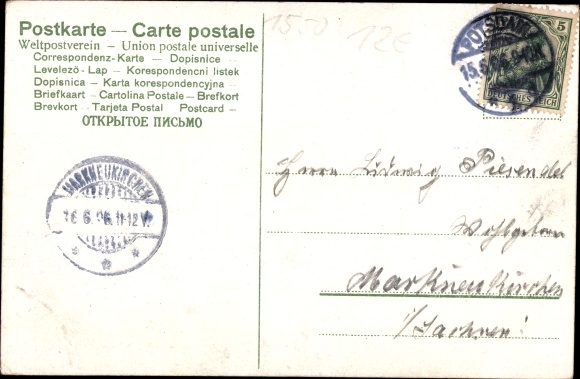 Postkarte — Carte postale
Weltpostverein - Union postale universelle
Correspondenz-Karte — Dopisnice
Levelező-Lap — Korespondencni listek
Dopisnica - Karta korespondencyjna
Briefkaart - Cartolina Postale - Brefkort
Brevkort - Tarjeta Postal Postcard -
ОТКРЫТОЕ ПИСЬМО
15.50 12€
POTSDAM
15.6.06.
5
DEUTSCHES REICH
MARKNEUKIRCHEN
16.6.06.11-12V.
Herrn Ludwig Piesendel
Wohlgeboren
Markneukirchen
i/Sachsen.